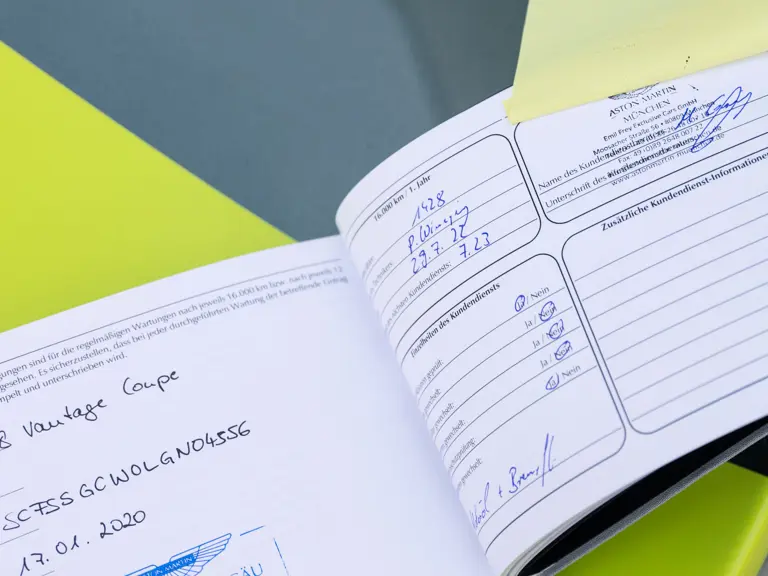 gungen sind für die regelmäßigen Wartungen nach jeweils 16.000 km bzw. nach jeweils 12
gesehen. Es sicherzustellen, dass bei jeder durchgeführten Wartung der betreffende Eintrag
mpelt und unterschrieben wird.
8 Vantage Coupe
SCFSSGCW0LGN04556
17.01.2020
ASTON MARTIN
GÄU
16.000 km / 1. Jahr
1428
29.7.22
nächsten Kundendiensts: 7.23
Einzelheiten des Kundendiensts
Ja / Nein
Ja / Nein
Ja / Nein
Ja / Nein
Ja / Nein
ASTON MARTIN
MÜNCHEN
Emil Frey Exclusive Cars GmbH
Moosacher Straße 56 • 80809 München
Name des
Fax: +49 (0)89 2648 007 27
Unterschrift des Kundendienstberaters
www.astonmartin-muenchen.de
Zusätzliche Kundendienst-Informationen